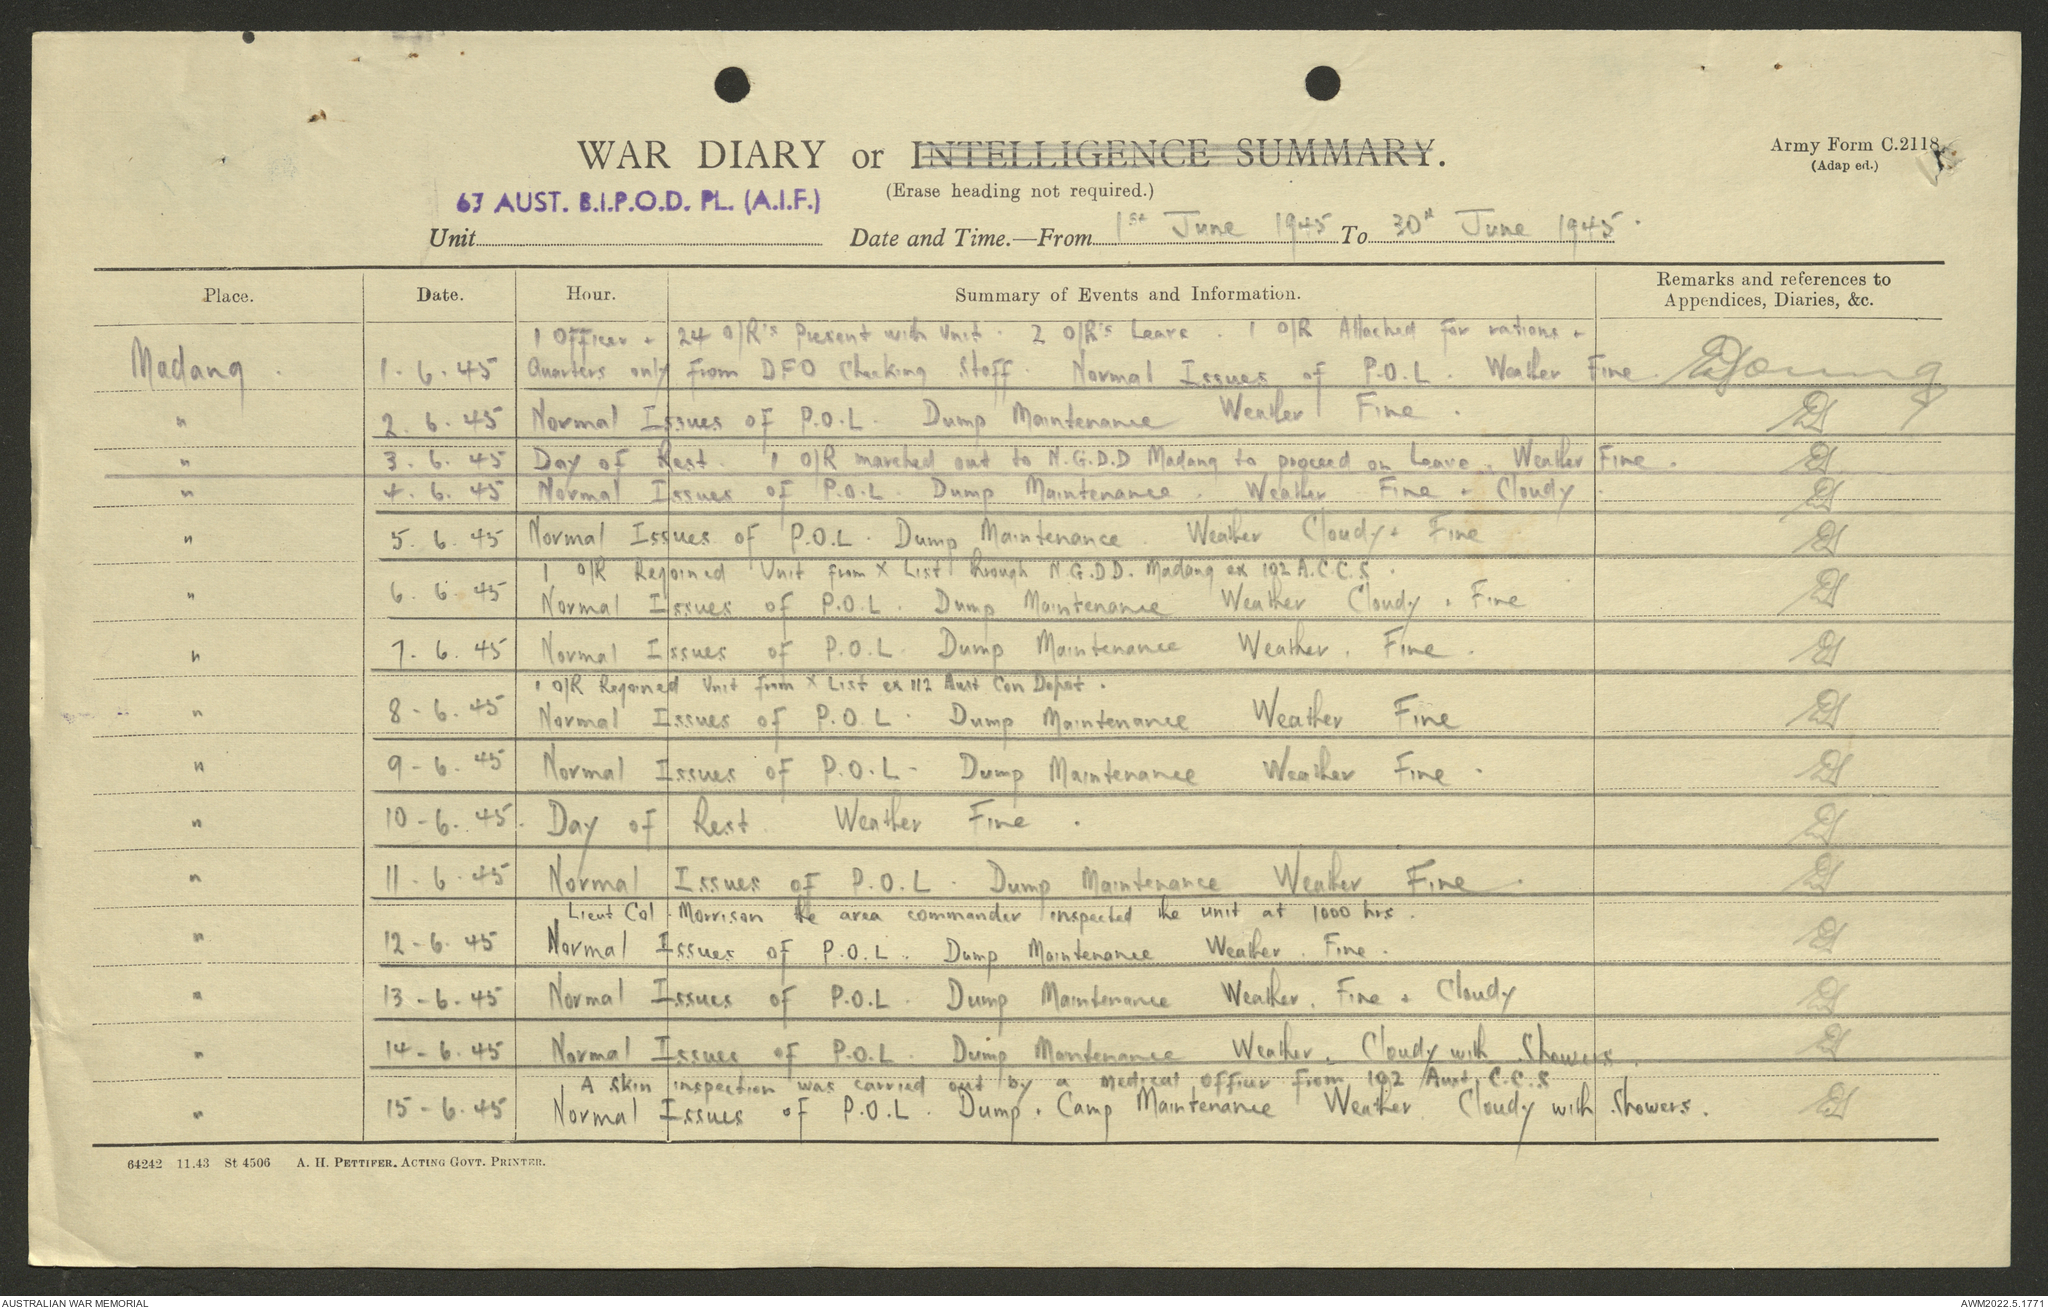 WAR DIARY or INTELLIGENCE SUMMARY.
Army Form C.2118
(Adap ed.)
(Erase heading not required.)
67 AUST. B.I.P.O.D. PL. (A.I.F.)
Unit Date and Time.—From 1st June 1945 To 30th June 1945.
Place. Date. Hour. Summary of Events and Information. Remarks and references to Appendices, Diaries, &c.
1 Officer + 24 O/R's Present with Unit. 2 O/R's Leave. 1 O/R Attached for rations +
Madang. 1.6.45 Quarters only from DFO Checking Staff. Normal Issues of P.O.L. Weather Fine EYoung
" 2.6.45 Normal Issues of P.O.L. Dump Maintenance Weather Fine. EY
" 3.6.45 Day of Rest. 1 O/R marched out to N.G.D.D Madang to proceed on Leave. Weather Fine. EY
" 4.6.45 Normal Issues of P.O.L. Dump Maintenance. Weather Fine + Cloudy. EY
" 5.6.45 Normal Issues of P.O.L. Dump Maintenance. Weather Cloudy + Fine EY
1 O/R Rejoined Unit from X List through N.G.D.D. Madang ex 102 A.C.C.S.
" 6.6.45 Normal Issues of P.O.L. Dump Maintenance Weather Cloudy + Fine EY
" 7.6.45 Normal Issues of P.O.L. Dump Maintenance Weather. Fine. EY
1 O/R Rejoined Unit from X List ex 112 Aust Con Depot.
" 8-6.45 Normal Issues of P.O.L. Dump Maintenance Weather Fine EY
" 9-6.45 Normal Issues of P.O.L- Dump Maintenance Weather Fine. EY
" 10-6.45. Day of Rest. Weather Fine. EY
" 11-6.45 Normal Issues of P.O.L. Dump Maintenance Weather Fine. EY
Lieut Col Morrison the area commander inspected the unit at 1000 hrs.
" 12-6.45 Normal Issues of P.O.L. Dump Maintenance Weather. Fine. EY
" 13-6.45 Normal Issues of P.O.L. Dump Maintenance Weather. Fine + Cloudy EY
" 14-6.45 Normal Issues of P.O.L. Dump Maintenance Weather. Cloudy with Showers. EY
A skin inspection was carried out by a Medical Officer from 102 Aust. C.C.S
" 15-6.45 Normal Issues of P.O.L. Dump + Camp Maintenance Weather Cloudy with Showers. EY
64242 11.43 St 4506 A. H. PETTIFER. ACTING GOVT. PRINTER.
AUSTRALIAN WAR MEMORIAL
AWM2022.5.1771